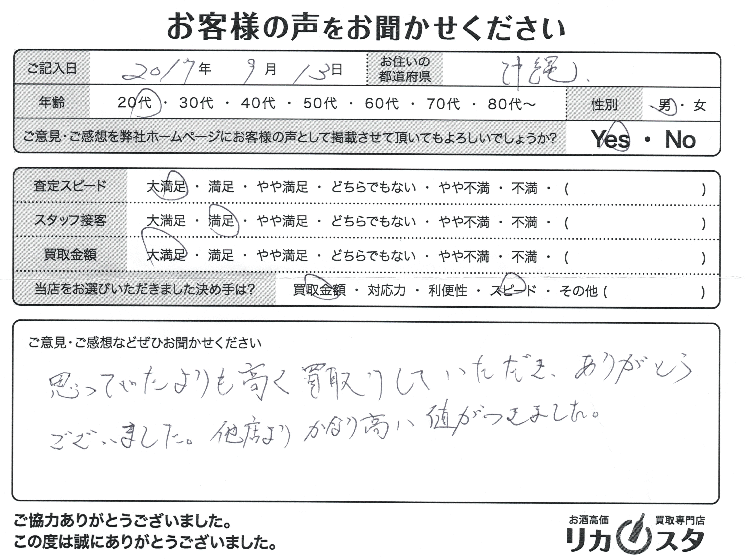 お客様の声をお聞かせください
ご記入日 2017年 9月 13日 お住いの都道府県 沖縄
年齢 20代・30代・40代・50代・60代・70代・80代～ 性別 男・女
ご意見・ご感想を弊社ホームページにお客様の声として掲載させて頂いてもよろしいでしょうか? Yes・No
査定スピード 大満足・満足・やや満足・どちらでもない・やや不満・不満・( )
スタッフ接客 大満足・満足・やや満足・どちらでもない・やや不満・不満・( )
買取金額 大満足・満足・やや満足・どちらでもない・やや不満・不満・( )
当店をお選びいただきました決め手は? 買取金額・対応力・利便性・スピード・その他( )
ご意見・ご感想などぜひお聞かせください
思っていたよりも高く買取りしていただき、ありがとう
ございました。他店よりかなり高い値がつきました。
ご協力ありがとうございました。
この度は誠にありがとうございました。
お酒高価 買取専門店
リカスタ